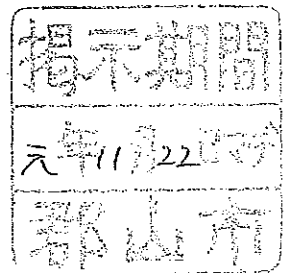 掲示期間
元年11月22日マデ
郡山市